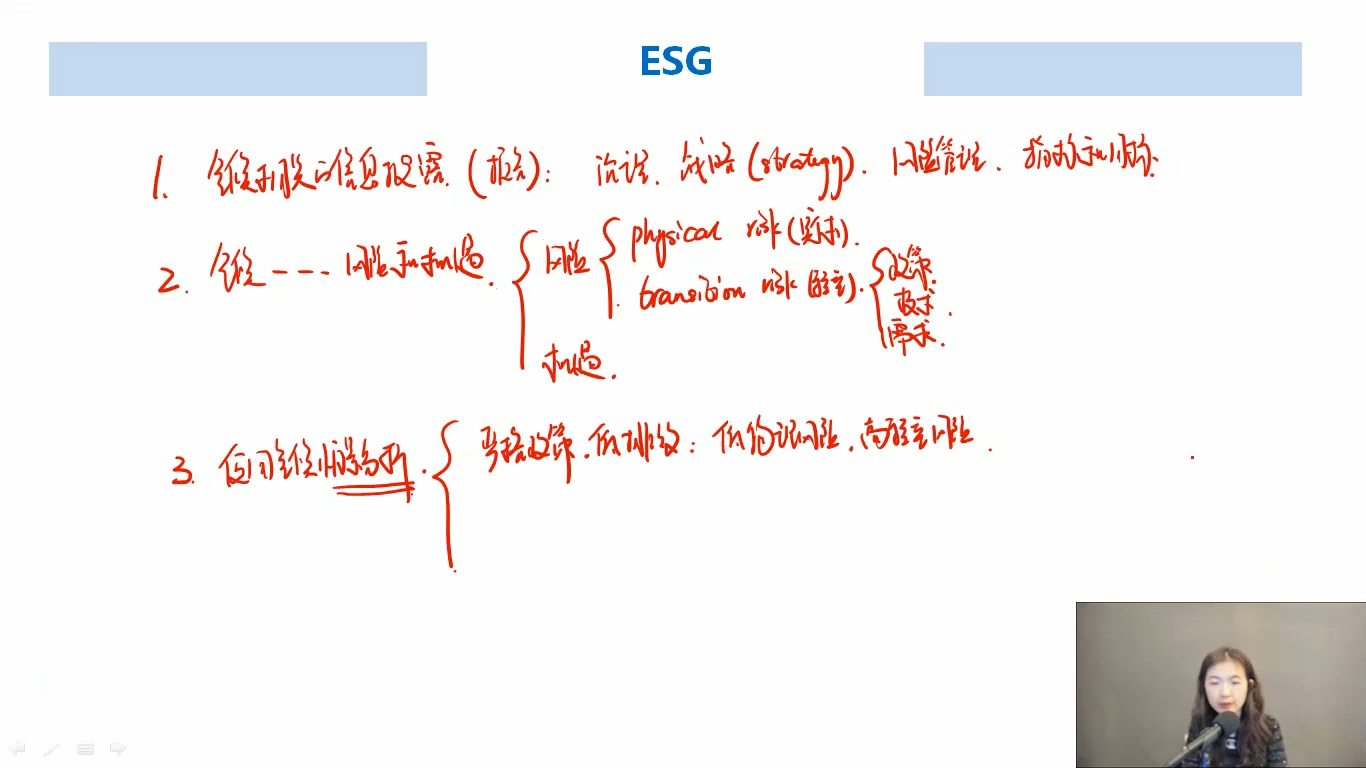 ESG
1. 气候相关的信息披露.(报告): 治理、战略(strategy)、风险管理、指标和目标.
2. 气候---- 风险和机遇.
风险
physical risk(实体).
transition risk(转型).
政策.
技术.
需求.
机遇.
3. 使用气候情景分析.
严格政策.低排放: 低物理风险.高转型风险.